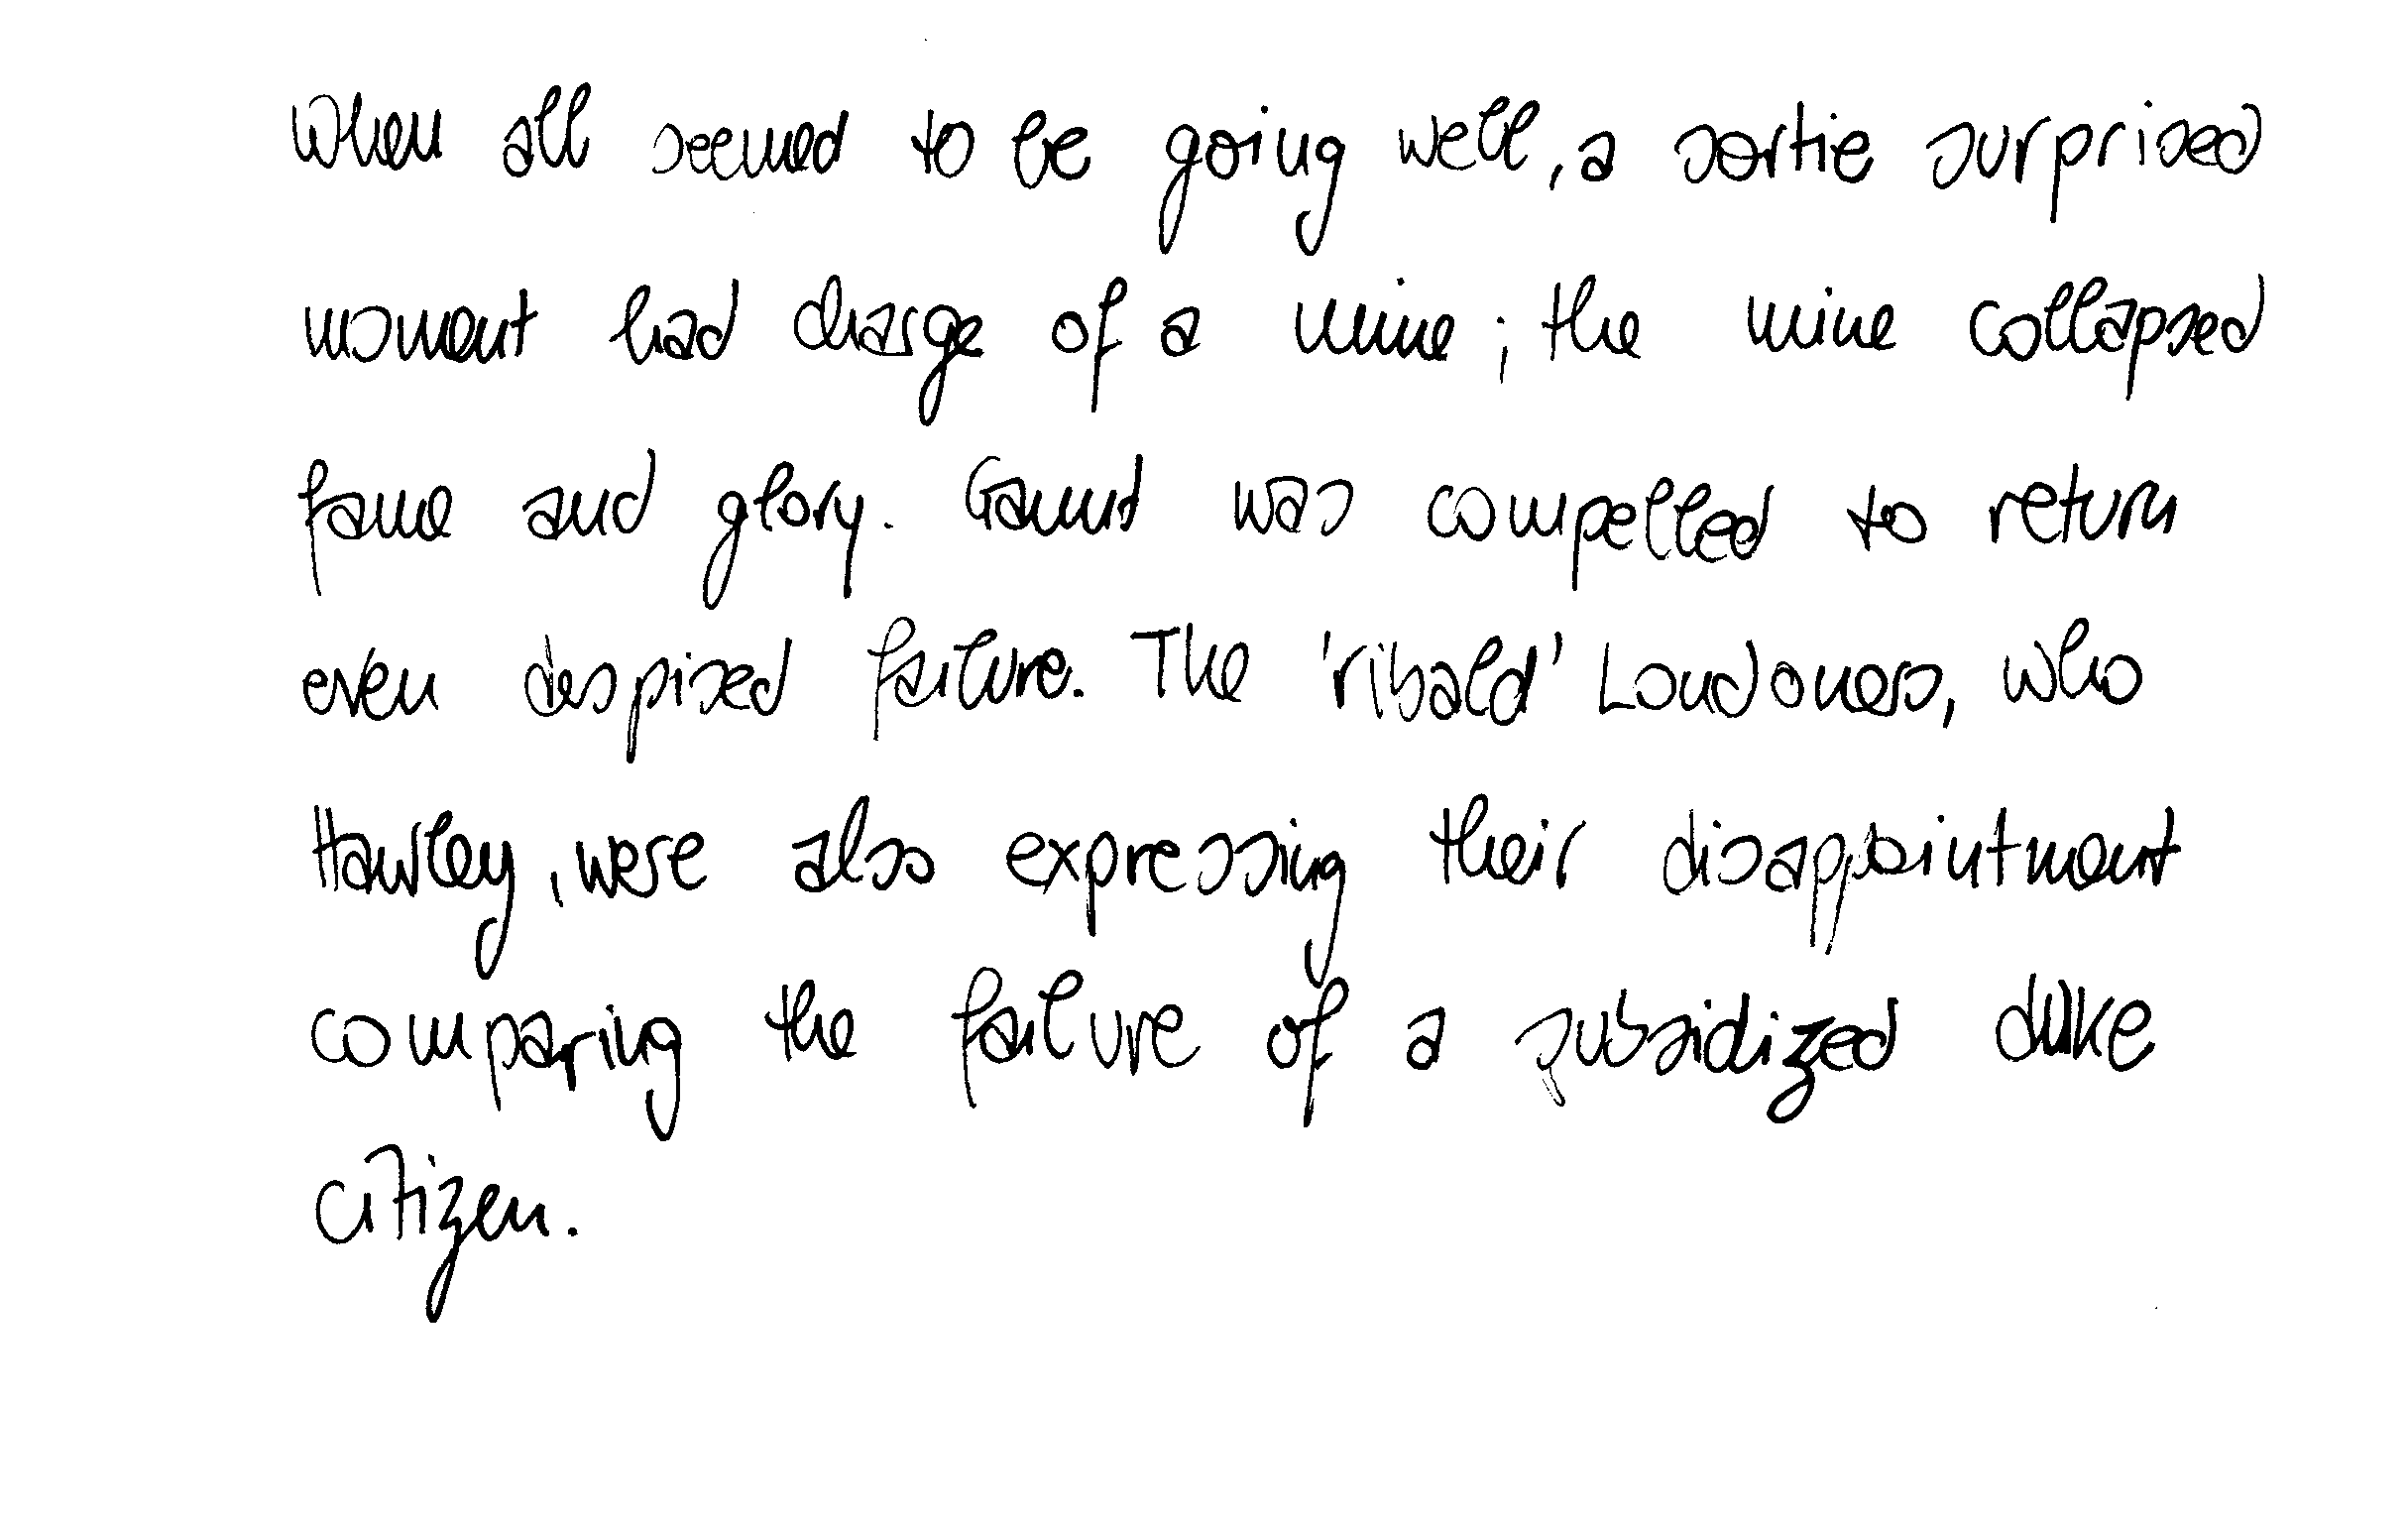 When all seemed to be going well, a sortie surprised
moment had charge of a mine; the mine collapsed
fame and glory. Gaunt was compelled to return
even despised failure. The 'ribald' Londoners, who
Hawley, were also expressing their disappointment
comparing the failure of a subsidized duke
citizen.